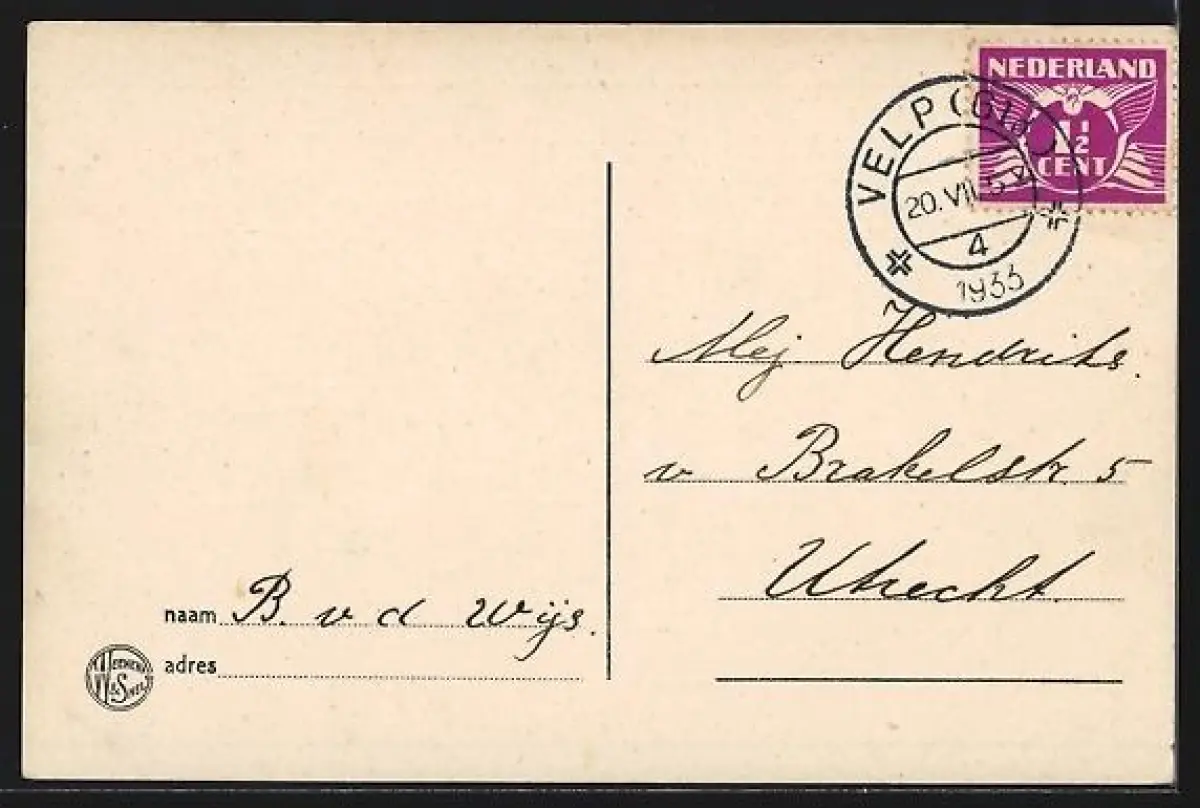 NEDERLAND
1½
CENT
VELP (Gld.)
20.VII.5
4
1933
Mej. Hendriks.
v Brakelstr. 5
Utrecht.
naam B. v d Wijs.
adres
Weenenk
& Snel